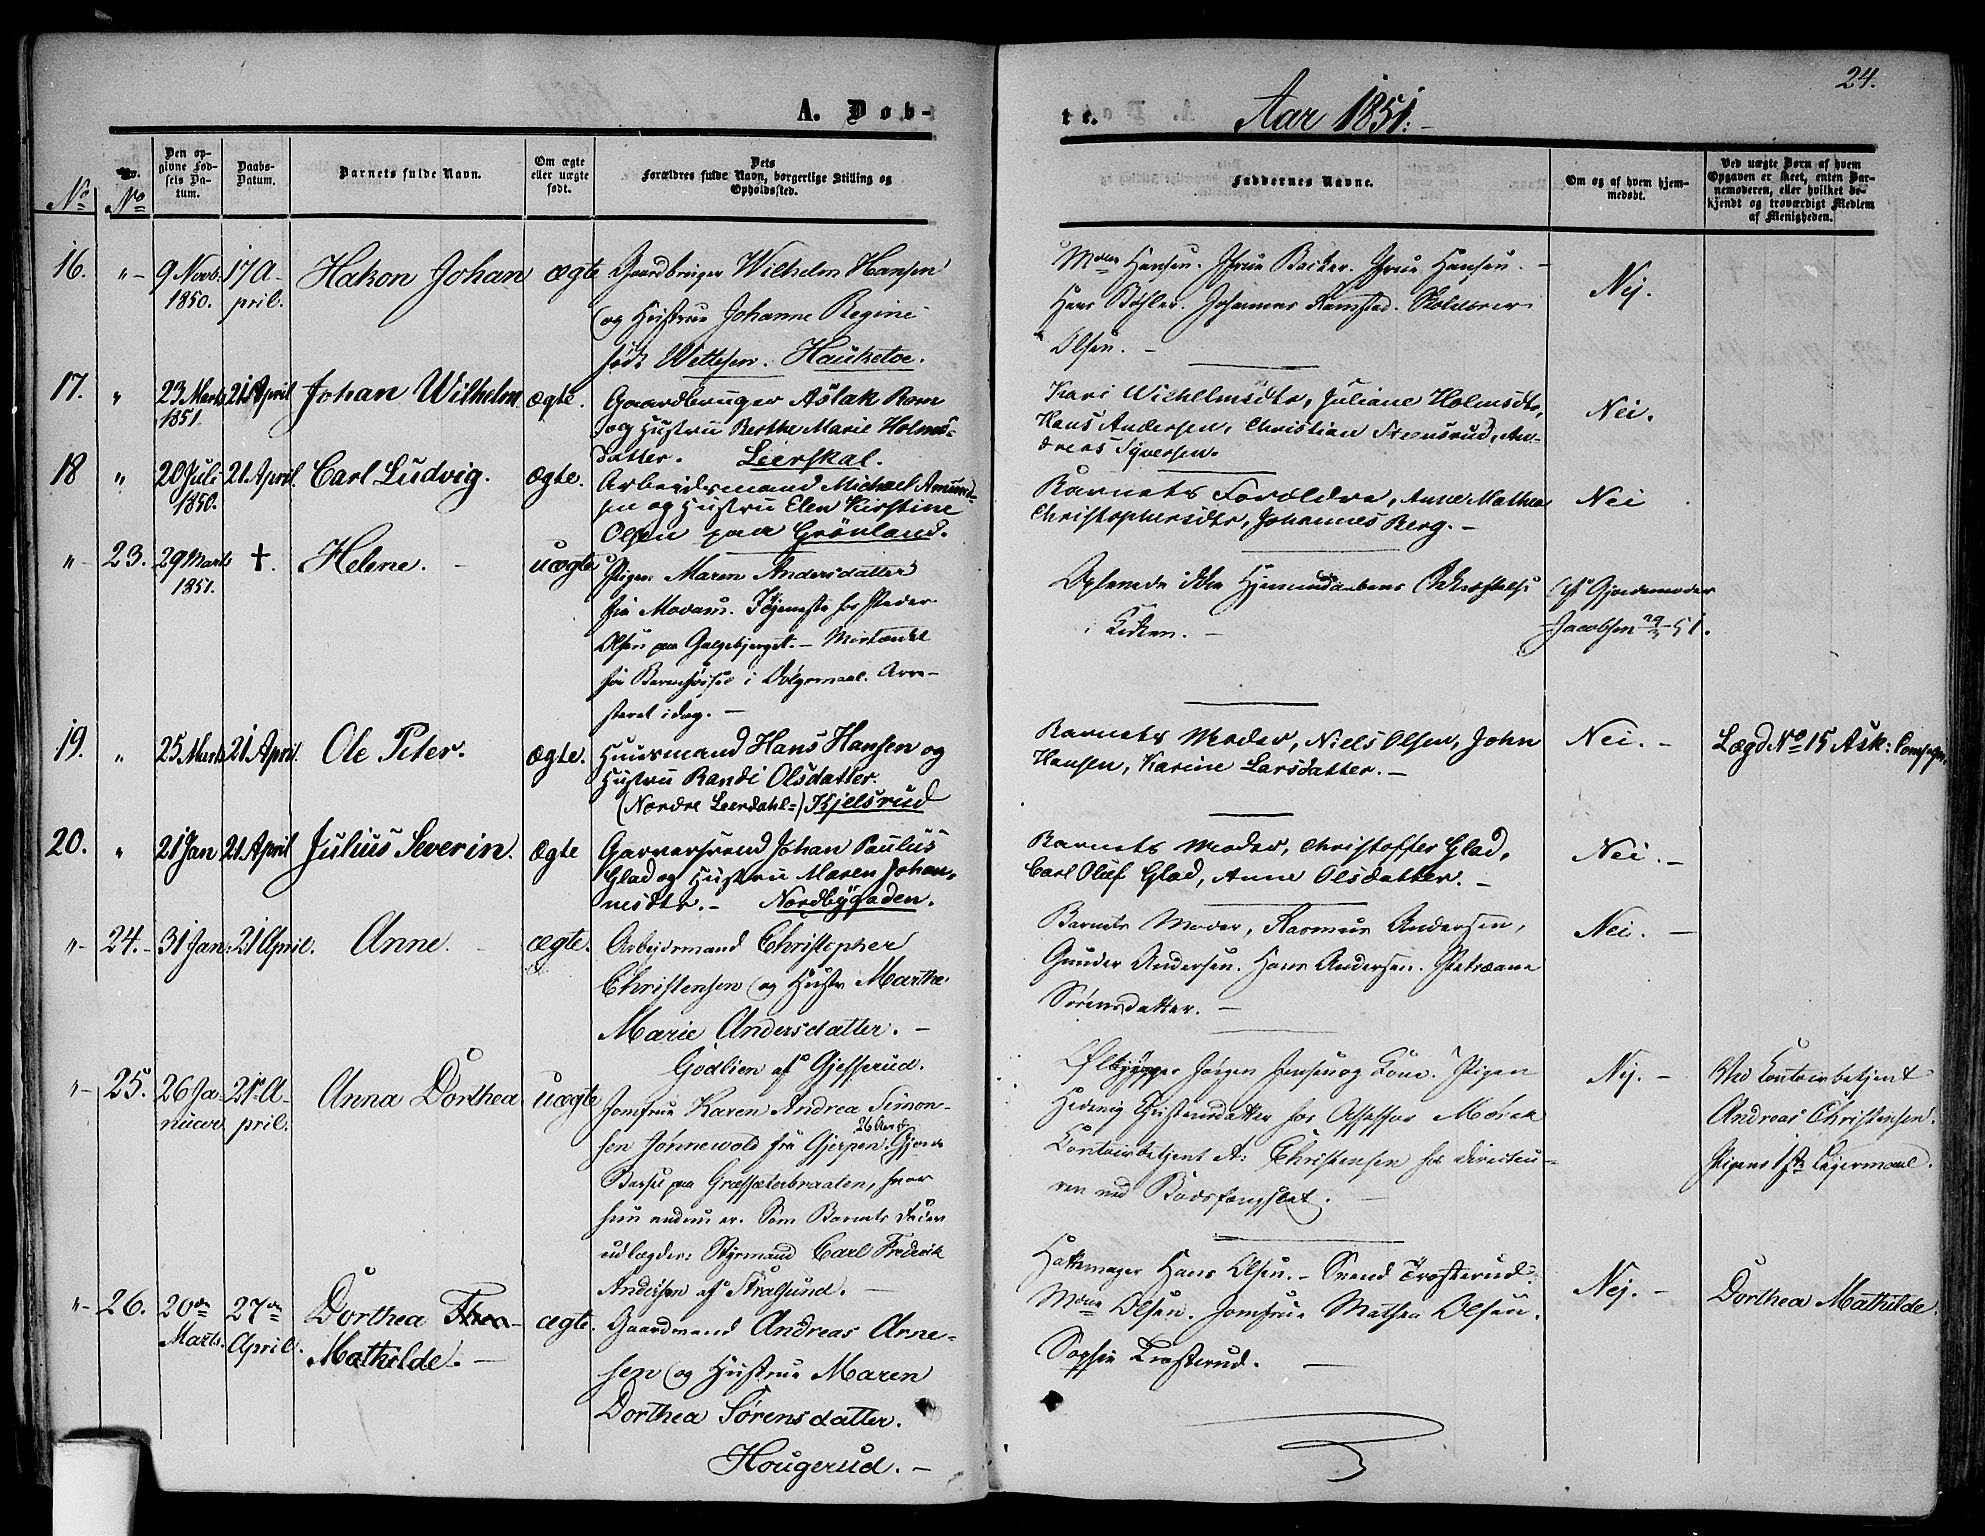 24.
A. Døb-
te. Aar 1851.
No
No
Den op-
givne Fød-
sels Da-
tum.
Daabs-
Datum.
Barnets fulde Navn.
Om ægte
eller uægte
født.
Dets
Forældres fulde Navn, borgerlige Stilling og
Opholdssted.
Faddernes Navne.
Om og af hvem hjem-
medøbt.
Ved uægte Børn af hvem
Opgaven er skeet, enten Bar-
nemoderen, eller hvilket be-
kjendt og troværdigt Medlem
af Menigheden.
16. " 9 Novb. 17 A- Hakon Johan ægte Gaardbruger Wilhelm Hansen
1850. pril. og Hustrue Johanne Regine
født Wettesen. Hauketoe.
Mdme Hansen. Frue Backer. Frue Hansen. -
Hans Bøhler. Johannes Ramstad. Skolelærer
Olsen. -
Nej.
17. " 23 Marts 21 April Johan Wilhelm ægte. Gaardbruger Aslak Rom
1851. og Hustru Berthe Marie Holms-
datter. Leerskal.
Kari Wichelmsdtr, Juliane Holmsdtr,
Hans Andersen, Christian Steensrud, An-
dreas Syversen.
Nei.
18 " 20 Juli 21 April. Carl Ludvig. ægte. Arbeidsmand Michael Amund-
1850. sen og Hustru Elen Kirstine
Olsen paa Grönland.
Barnets Forældre, Anne Mathea
Christophersdtr, Johannes Berg. -
Nei
" 23. 29 Marts †. Helene. uægte Pigen Maren Andersdatter
1851. fra Modum. Tjeneste hos Peder
Olsen paa Galgebjerget. - Mistænkt
for Barnefødsel i Dølgsmaal. Arre-
steret idag. -
Oplevede ikke Hjemmedaabens Bekræftelse
i Kirken. -
af Gjordemoder
Jacobsen 29/3 51.
19. " 25 Marts 21 April. Ole Peter. ægte. Huusmand Hans Hansen og
Hustru Randi Olsdatter.
(Nordre Leerdahl=) Kjelsrud
Barnets Moder, Niels Olsen, John
Hansen, Karine Larsdatter. -
Nei. -
Lægd No 15 Ask: Comp
20. " 21 Jan 21 April Julius Severin. Ægte Garversvend Johan Paulus
Glad og Hustru Maren Johan-
nesdtr. - Nordbygaden.
Barnets Moder, Christoffer Glad,
Carl Oluf Glad, Anne Olsdatter. -
Nei. -
" 24. - 31 Jan. 21 April. Anne. ægte. Arbeidsmand Christopher
Christensen og Hustr Marthe
Marie Andersdatter. -
Godlien af Gjesserud.
Barnets Moder, Rasmus Andersen,
Gunder Andersen. Hans Andersen. Petræane
Sørensdatter. -
Nei. -
" 25. 26 Ja- 21 A- Anna Dorthea uægte Jomfrue Karen Andrea Simon-
nuar pril. sen Jønnevold fra Gjerpen. 26 Aar Gjorde
Barsel paa Græssæterbraaten, hvor
hun endnu er. Som Barnets Fader
udlægdes: Styrmand Carl Frederik
Andersen af Stralsund. -
Ølbrygger Jørgen Jensen og Kone. Pigen
Hedevig Christensdatter hos Assessor Mørck
Contoirbetjent A: Christensen hos Directeu-
ren ved Bodsfængslet. -
Nej. -
Ved Contoirbetjent
Andreas Christensen.
Pigens 1ste Leiermaal.
" 26. 20de 27de Dorthea Thea ægte. Gaardmand Andreas Arne-
Marts. April. Mathilde. - sen og Hustrue Maren
Dorthea Sørensdatter.
Hougerud. -
Hattemager Hans Olsen. - Svend Trosterud.
Mdme Olsen. Jomfrue Mathea Olsen.
Sophie Trosterud. -
Nej. -
Dorthea Mathilde.